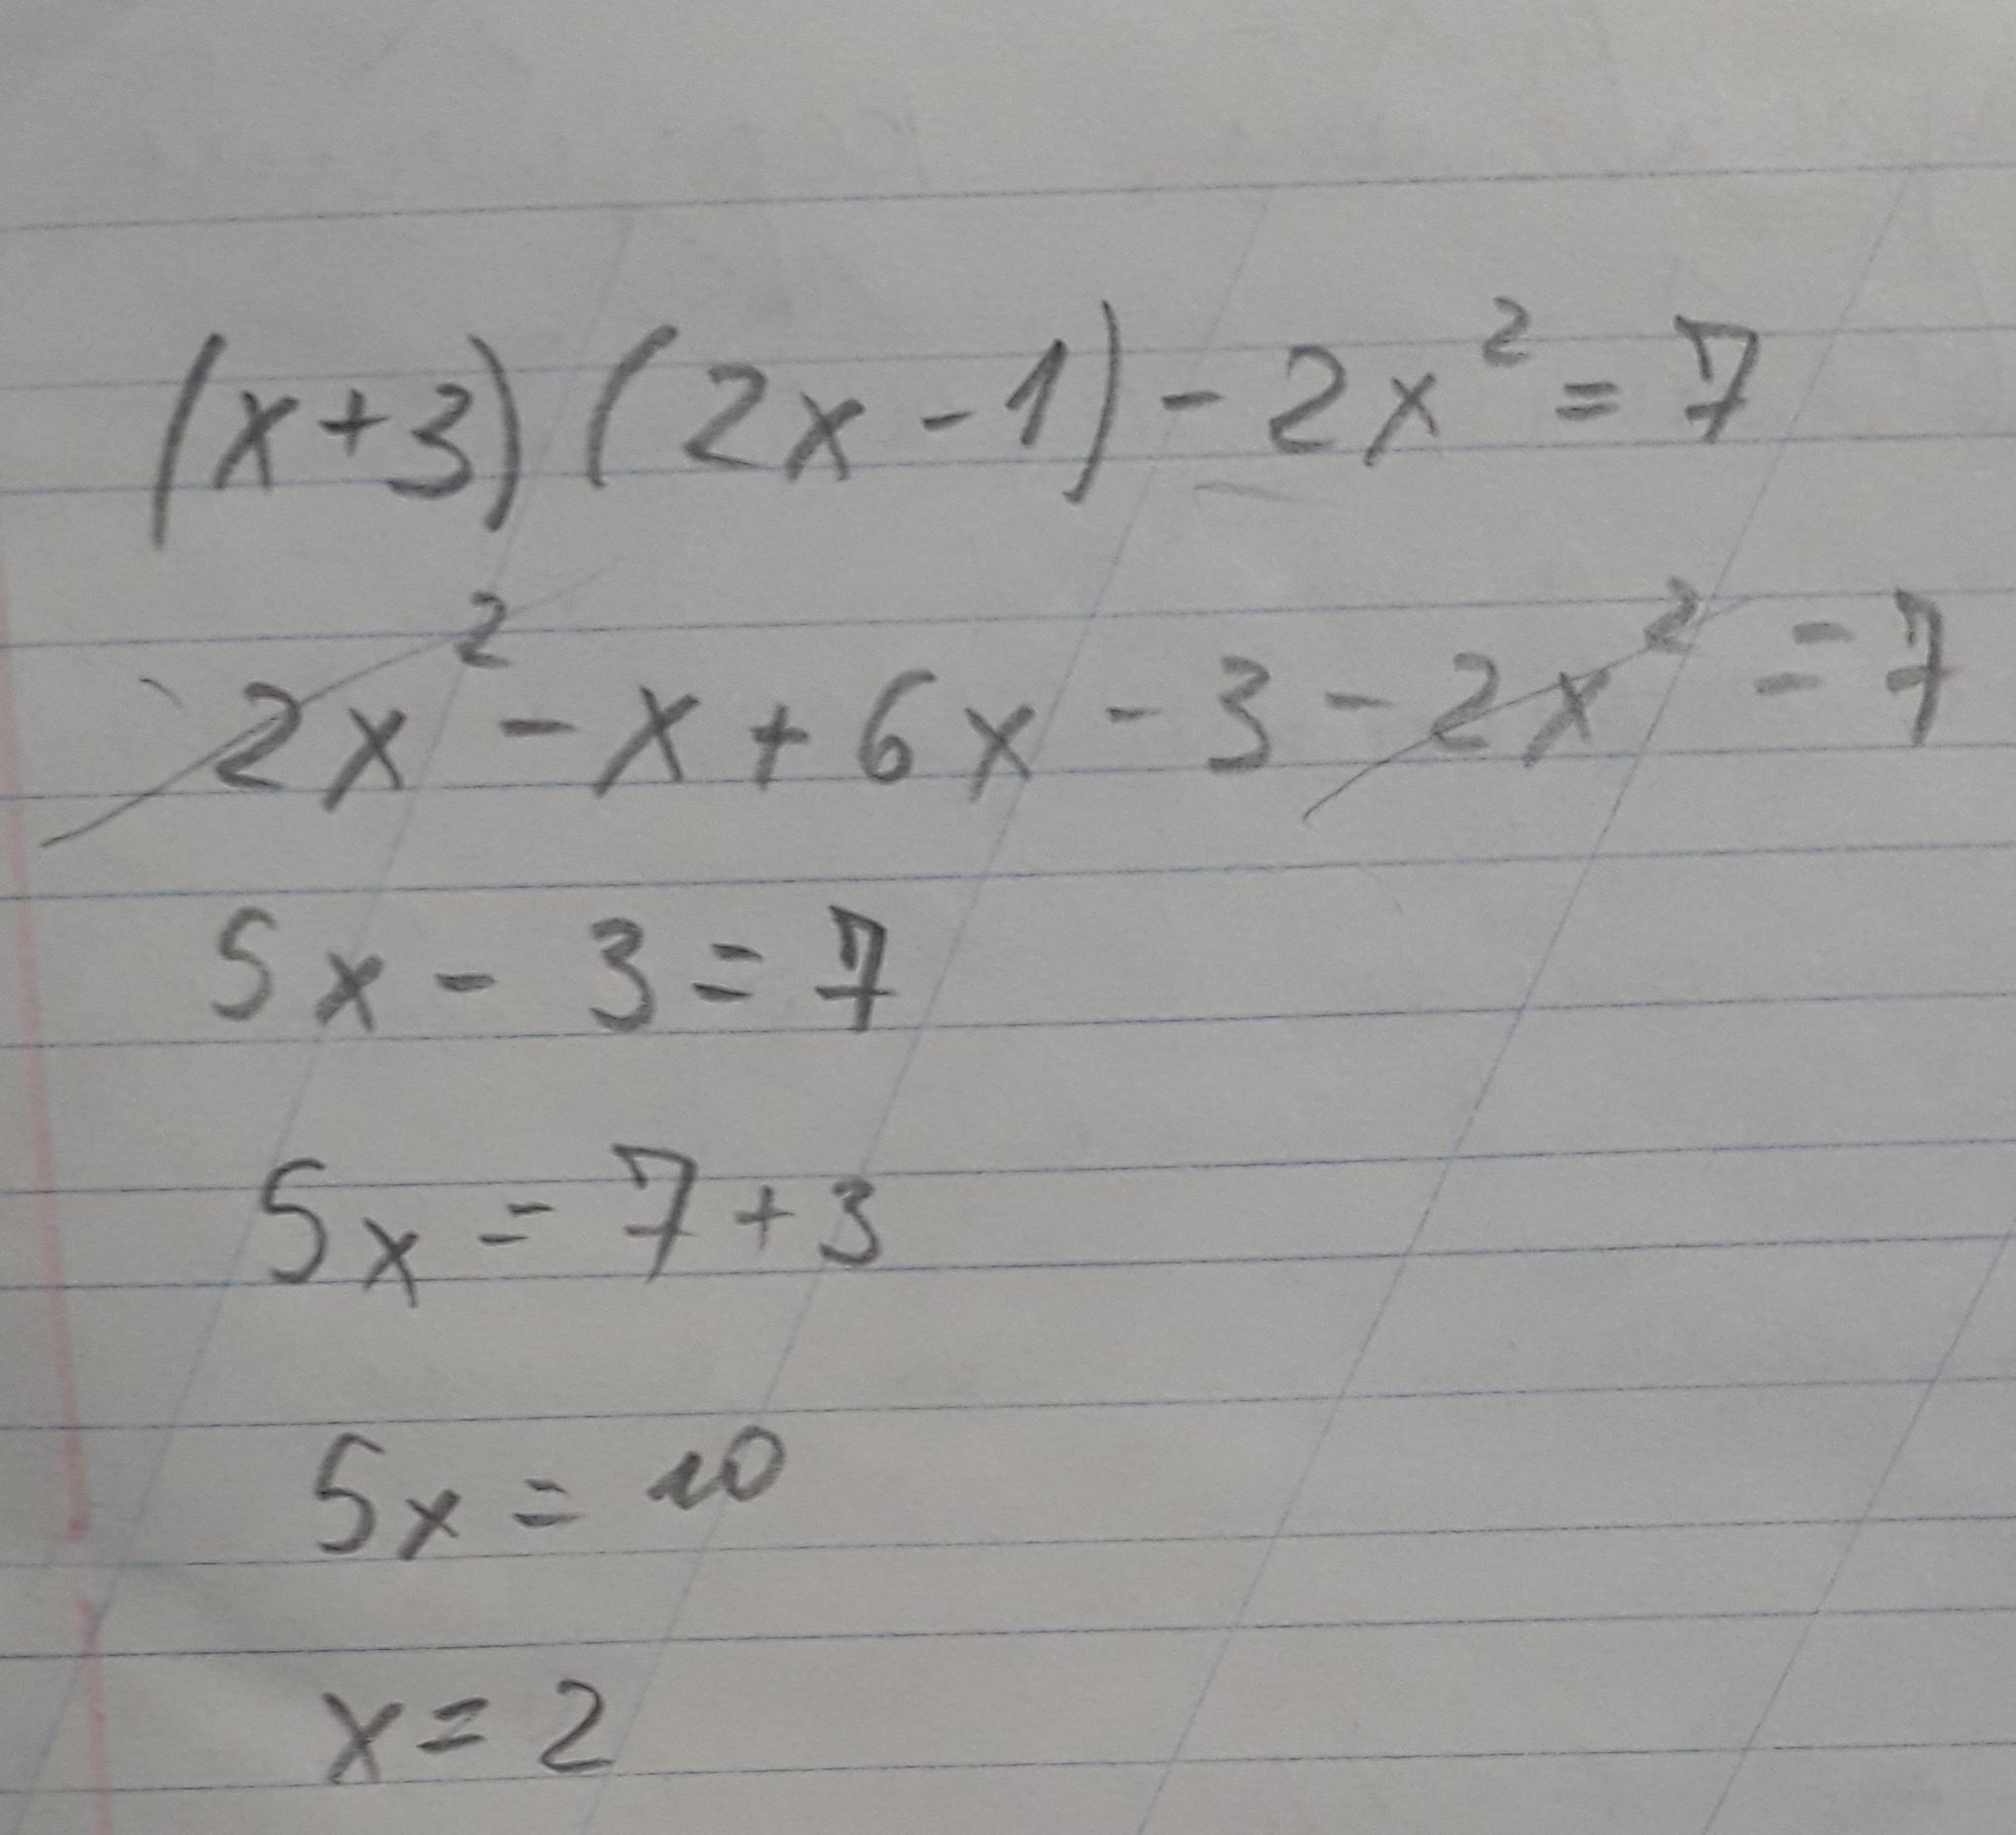 (x+3)(2x-1)-2x²=7
2x²-x+6x-3-2x²=7
5x-3=7
5x=7+3
5x=10
x=2